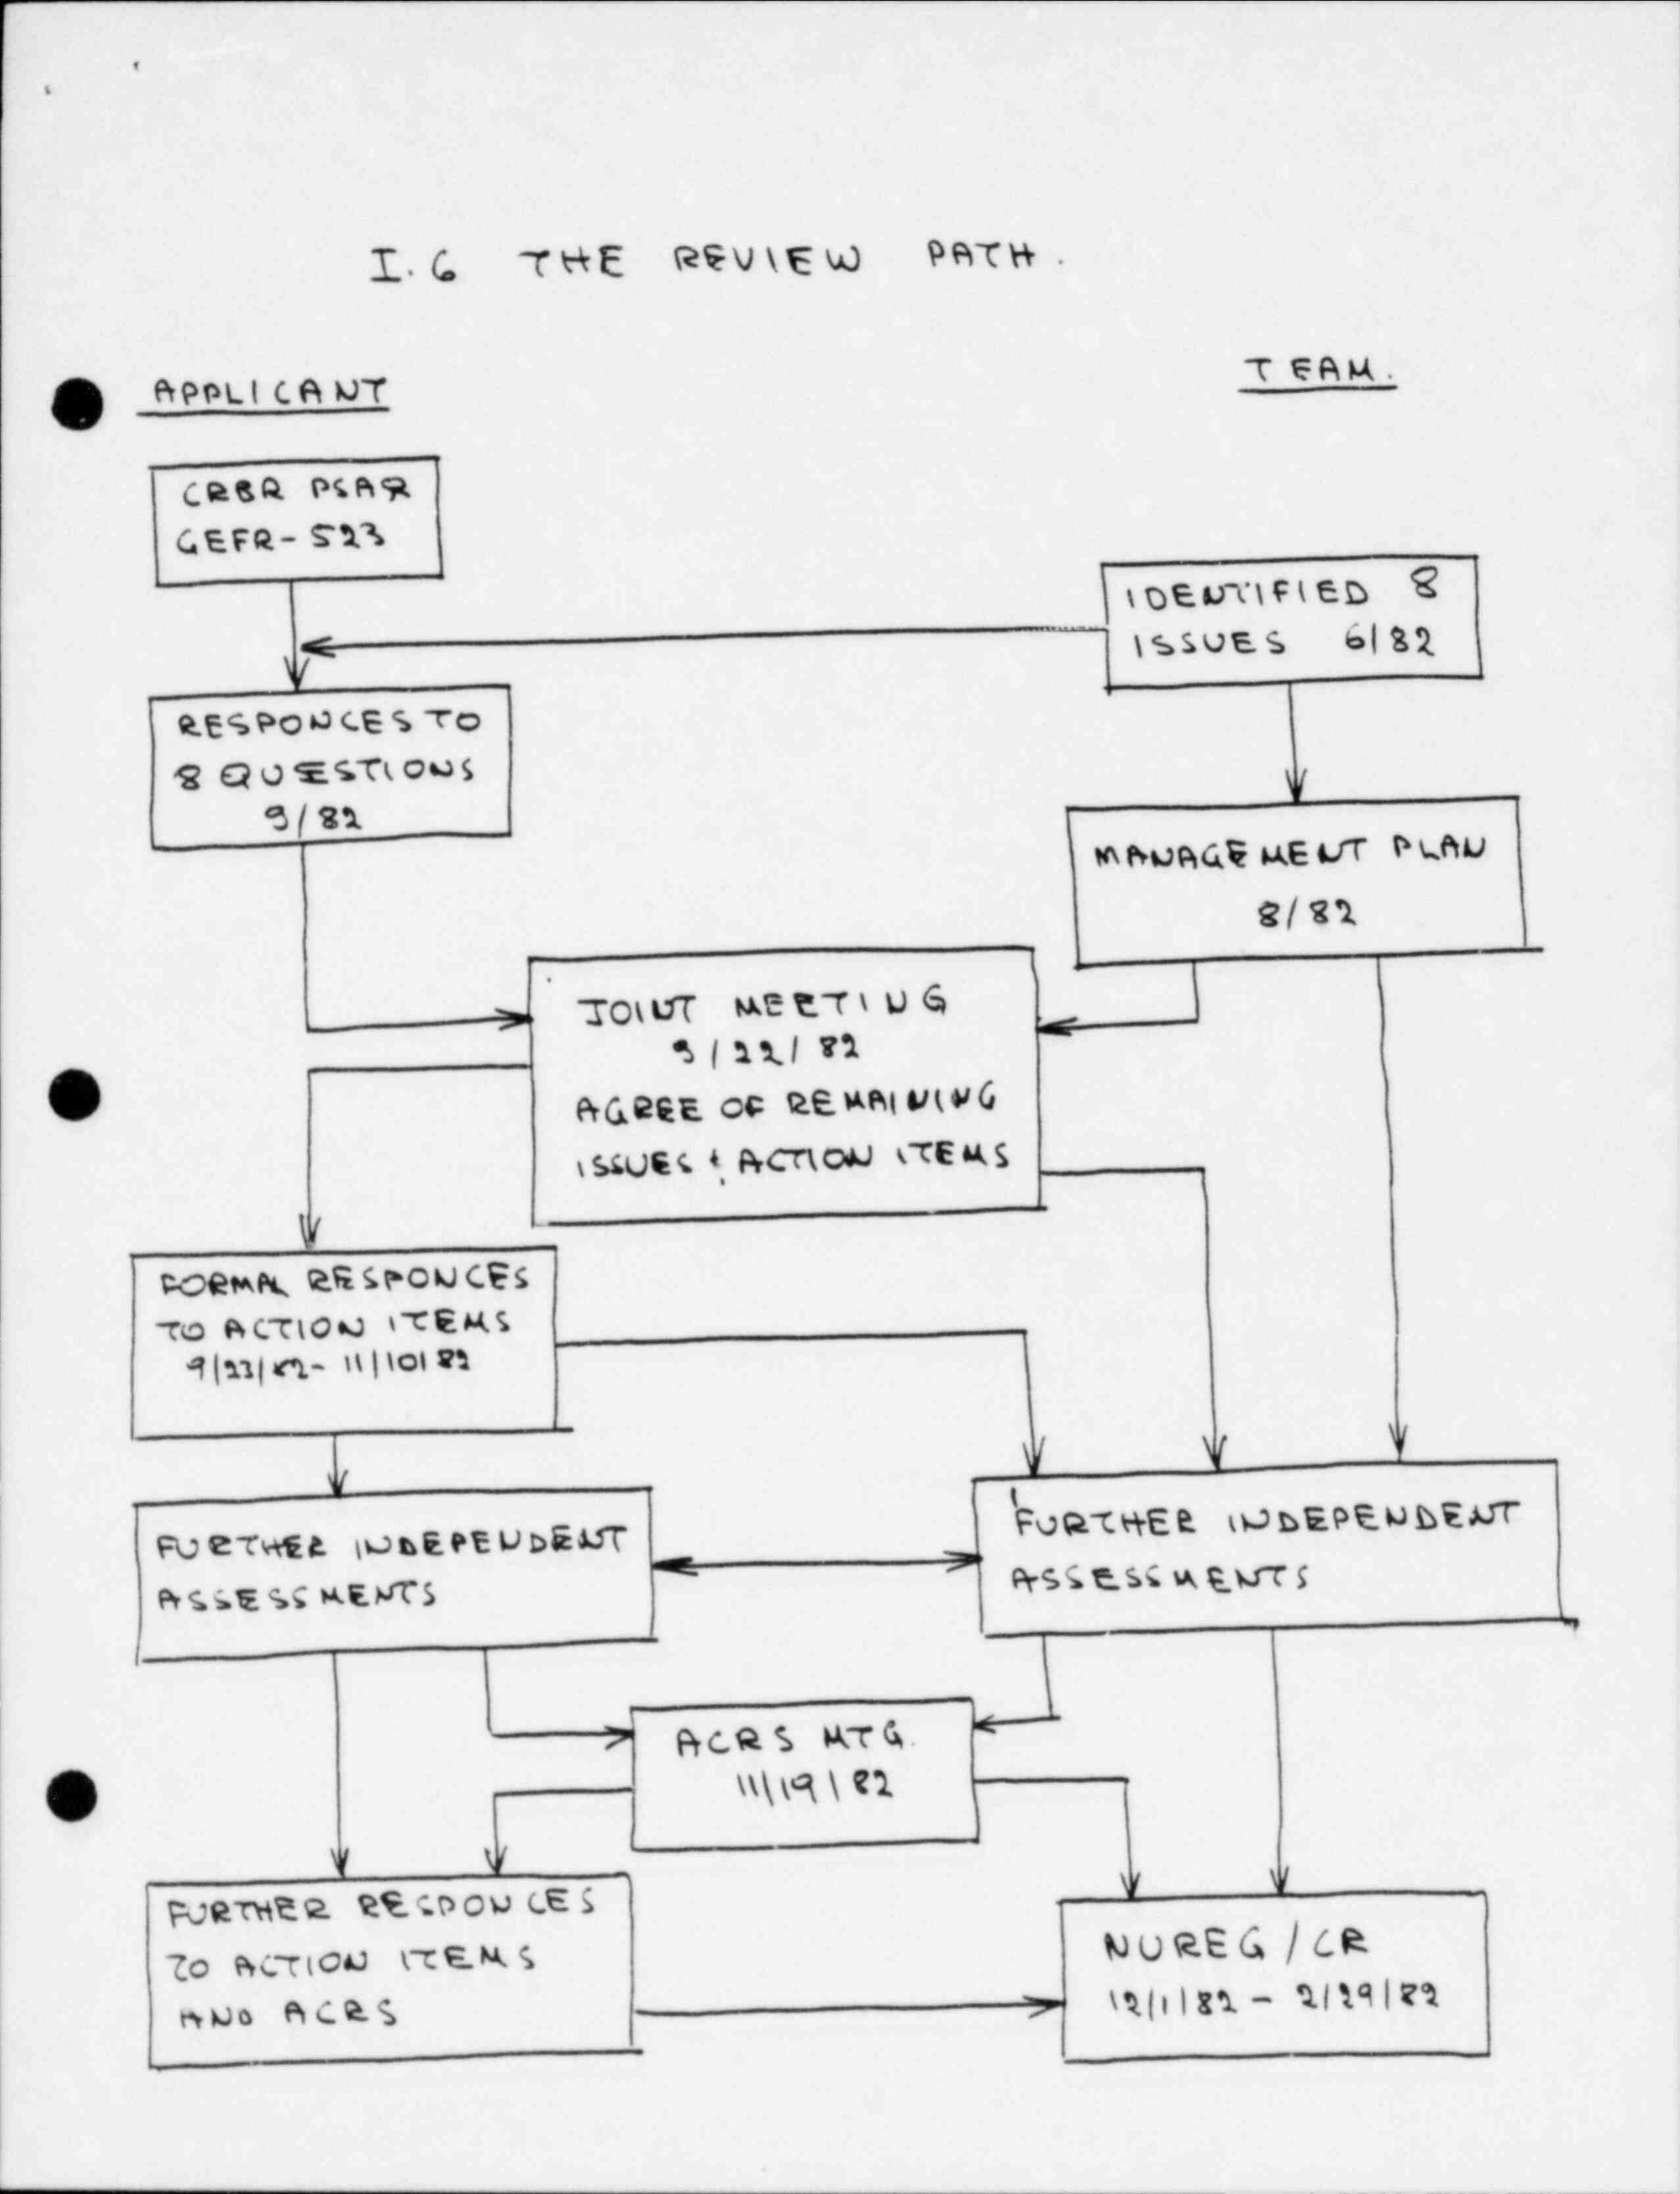 I.6 THE REVIEW PATH.
APPLICANT
TEAM.
CRBR PSAR
GEFR-523
IDENTIFIED 8
ISSUES 6/82
RESPONCES TO
8 QUESTIONS
9/82
MANAGEMENT PLAN
8/82
JOINT MEETING
9/22/82
AGREE OF REMAINING
ISSUES & ACTION ITEMS
FORMAL RESPONCES
TO ACTION ITEMS
9/23/82- 11/10/82
FURTHER INDEPENDENT
ASSESSMENTS
FURTHER INDEPENDENT
ASSESSMENTS
ACRS MTG.
11/19/82
FURTHER RESPONCES
TO ACTION ITEMS
AND ACRS
NUREG/CR
12/1/82 - 2/29/82